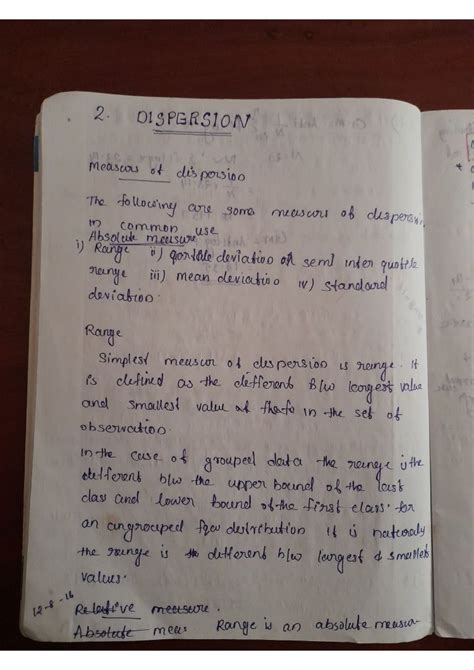 2. DISPERSION
Measurs of dispersion
The following are some measurs of dispersion
in common use
Absolute measure
i) Range ii) qortile deviation or semi inter quotile
range iii) mean deviation iv) standard
deviation.
Range
Simplest measur of dispersion is range. It
is defined as the different b/w largest value
and smallest value of in the set of
observation.
In the case of grouped data the range is the
different b/w the upper bound of the last
class and lower bound of the first class. for
an ungrouped distribution it is naturaly
the range is the different b/w largest & smallest
values.
12-8-16 Relative measure.
Absolute meas Range is an absolute measur